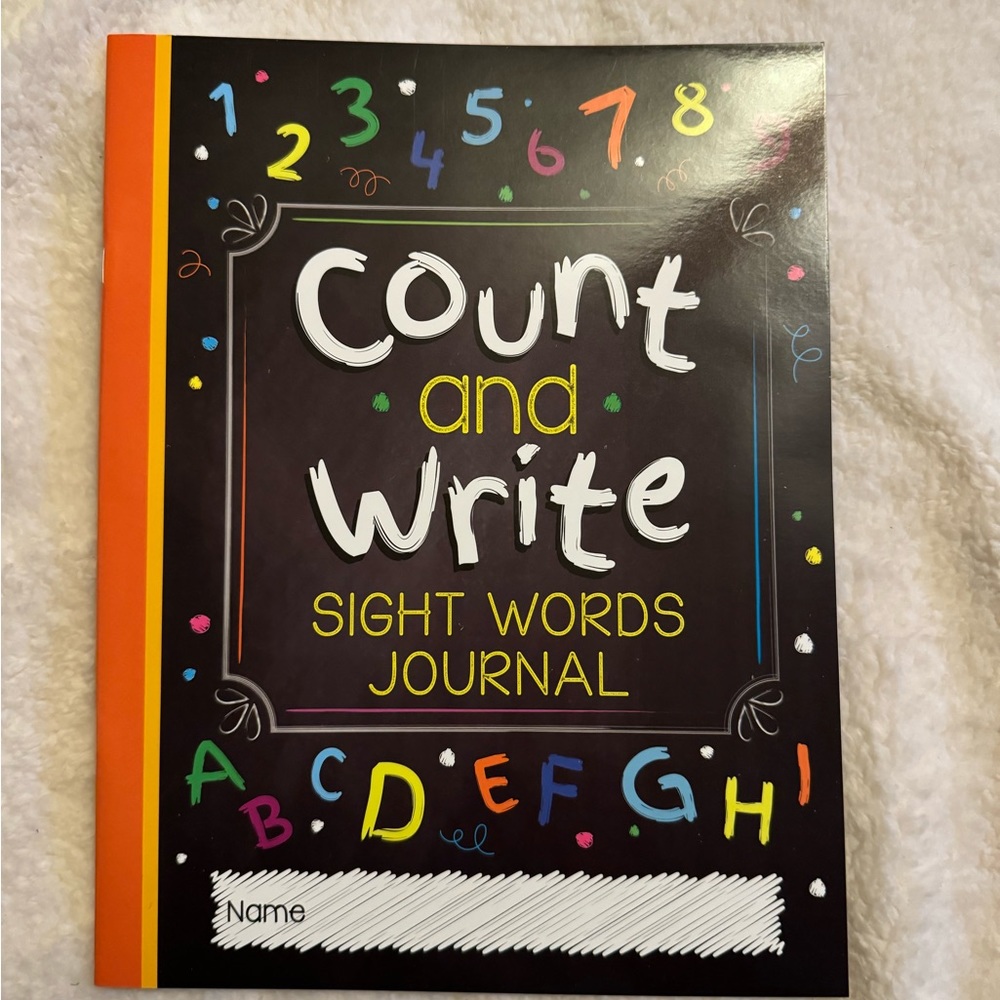 1 2 3 4 5 6 7 8 9
Count
and
Write
SIGHT WORDS
JOURNAL
A B C D E F G H I
Name